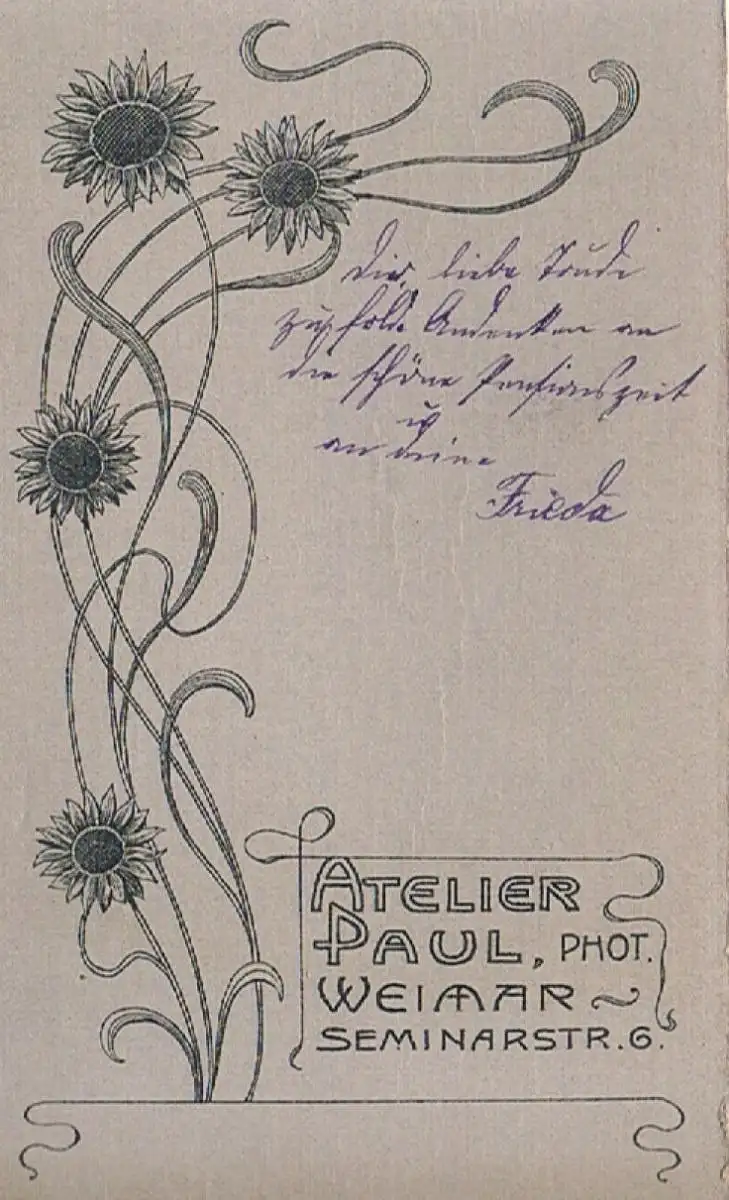 Dir, liebe Trude
zum holde Andenken an
die schöne Pensionszeit
u.
an deine
Frieda
ATELIER
PAUL, PHOT.
WEIMAR
SEMINARSTR. 6.